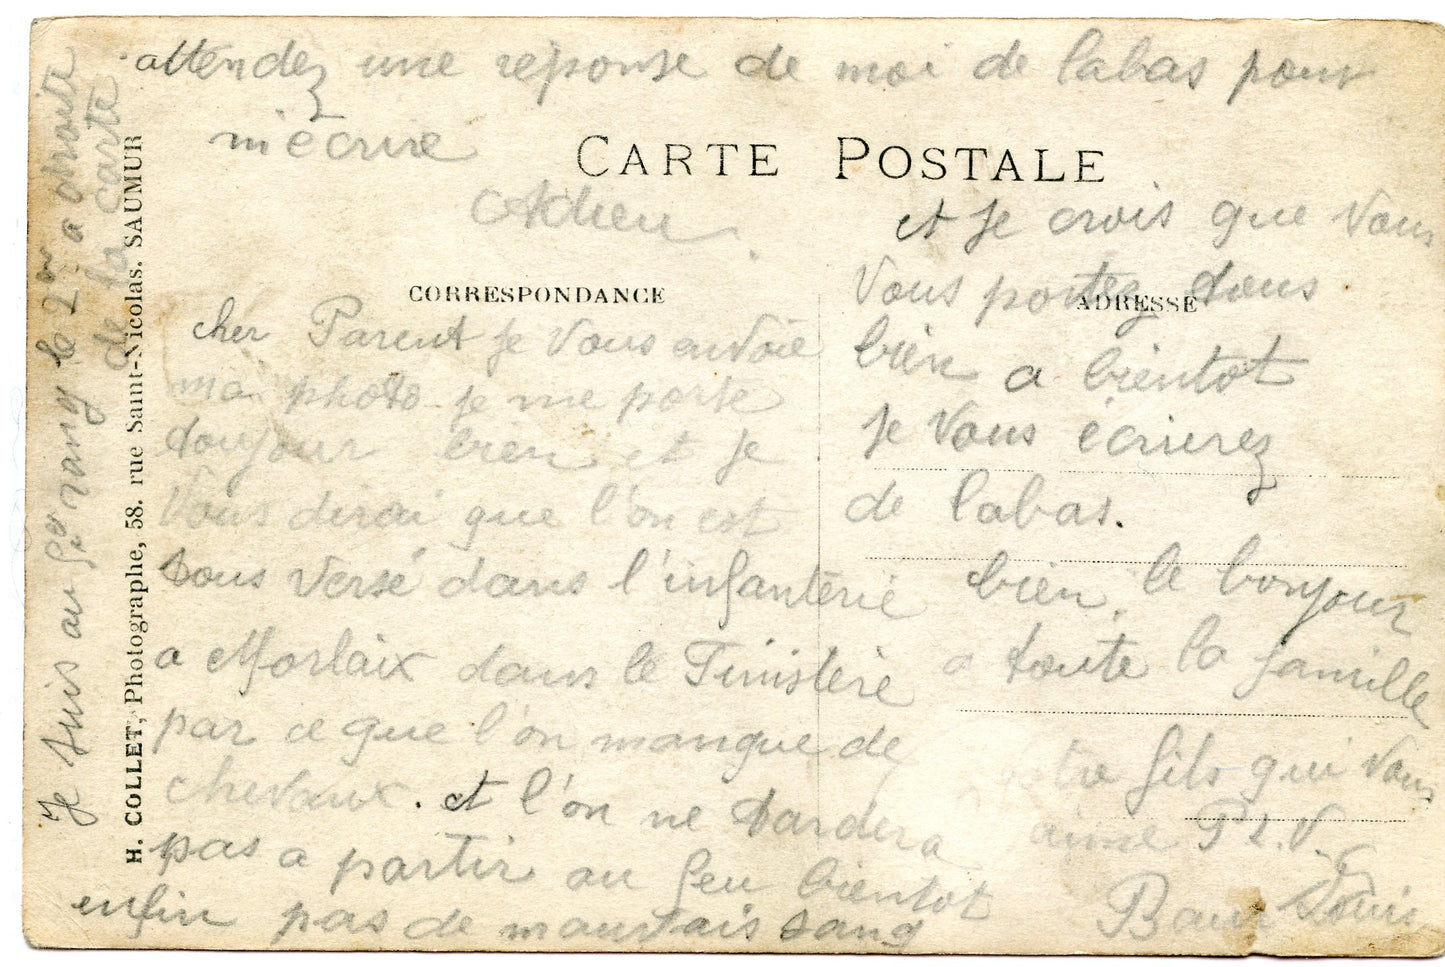 attendez une reponse de moi de labas pour
m'écrire
Adieu
CARTE POSTALE
CORRESPONDANCE
cher Parent je vous envoie
ma photo je me porte
toujour bien et je
vous dirai que l'on est
tous versé dans l'infanterie
a Morlaix dans le Finistere
par ce que l'on manque de
chevaux. et l'on ne tardera
pas a partir au feu bientot
enfin pas de mauvais sang
ADRESSE
et je crois que vous
vous portez tous
bien a bientot
je vous écrierez
de labas.
bien le bonjour
a toute la famille
votre fils qui vous
aime P.L.V.
Louis
je suis au rang le 2me a droite
de la carte
H. COLLET, Photographe, 58. rue Saint-Nicolas. SAUMUR